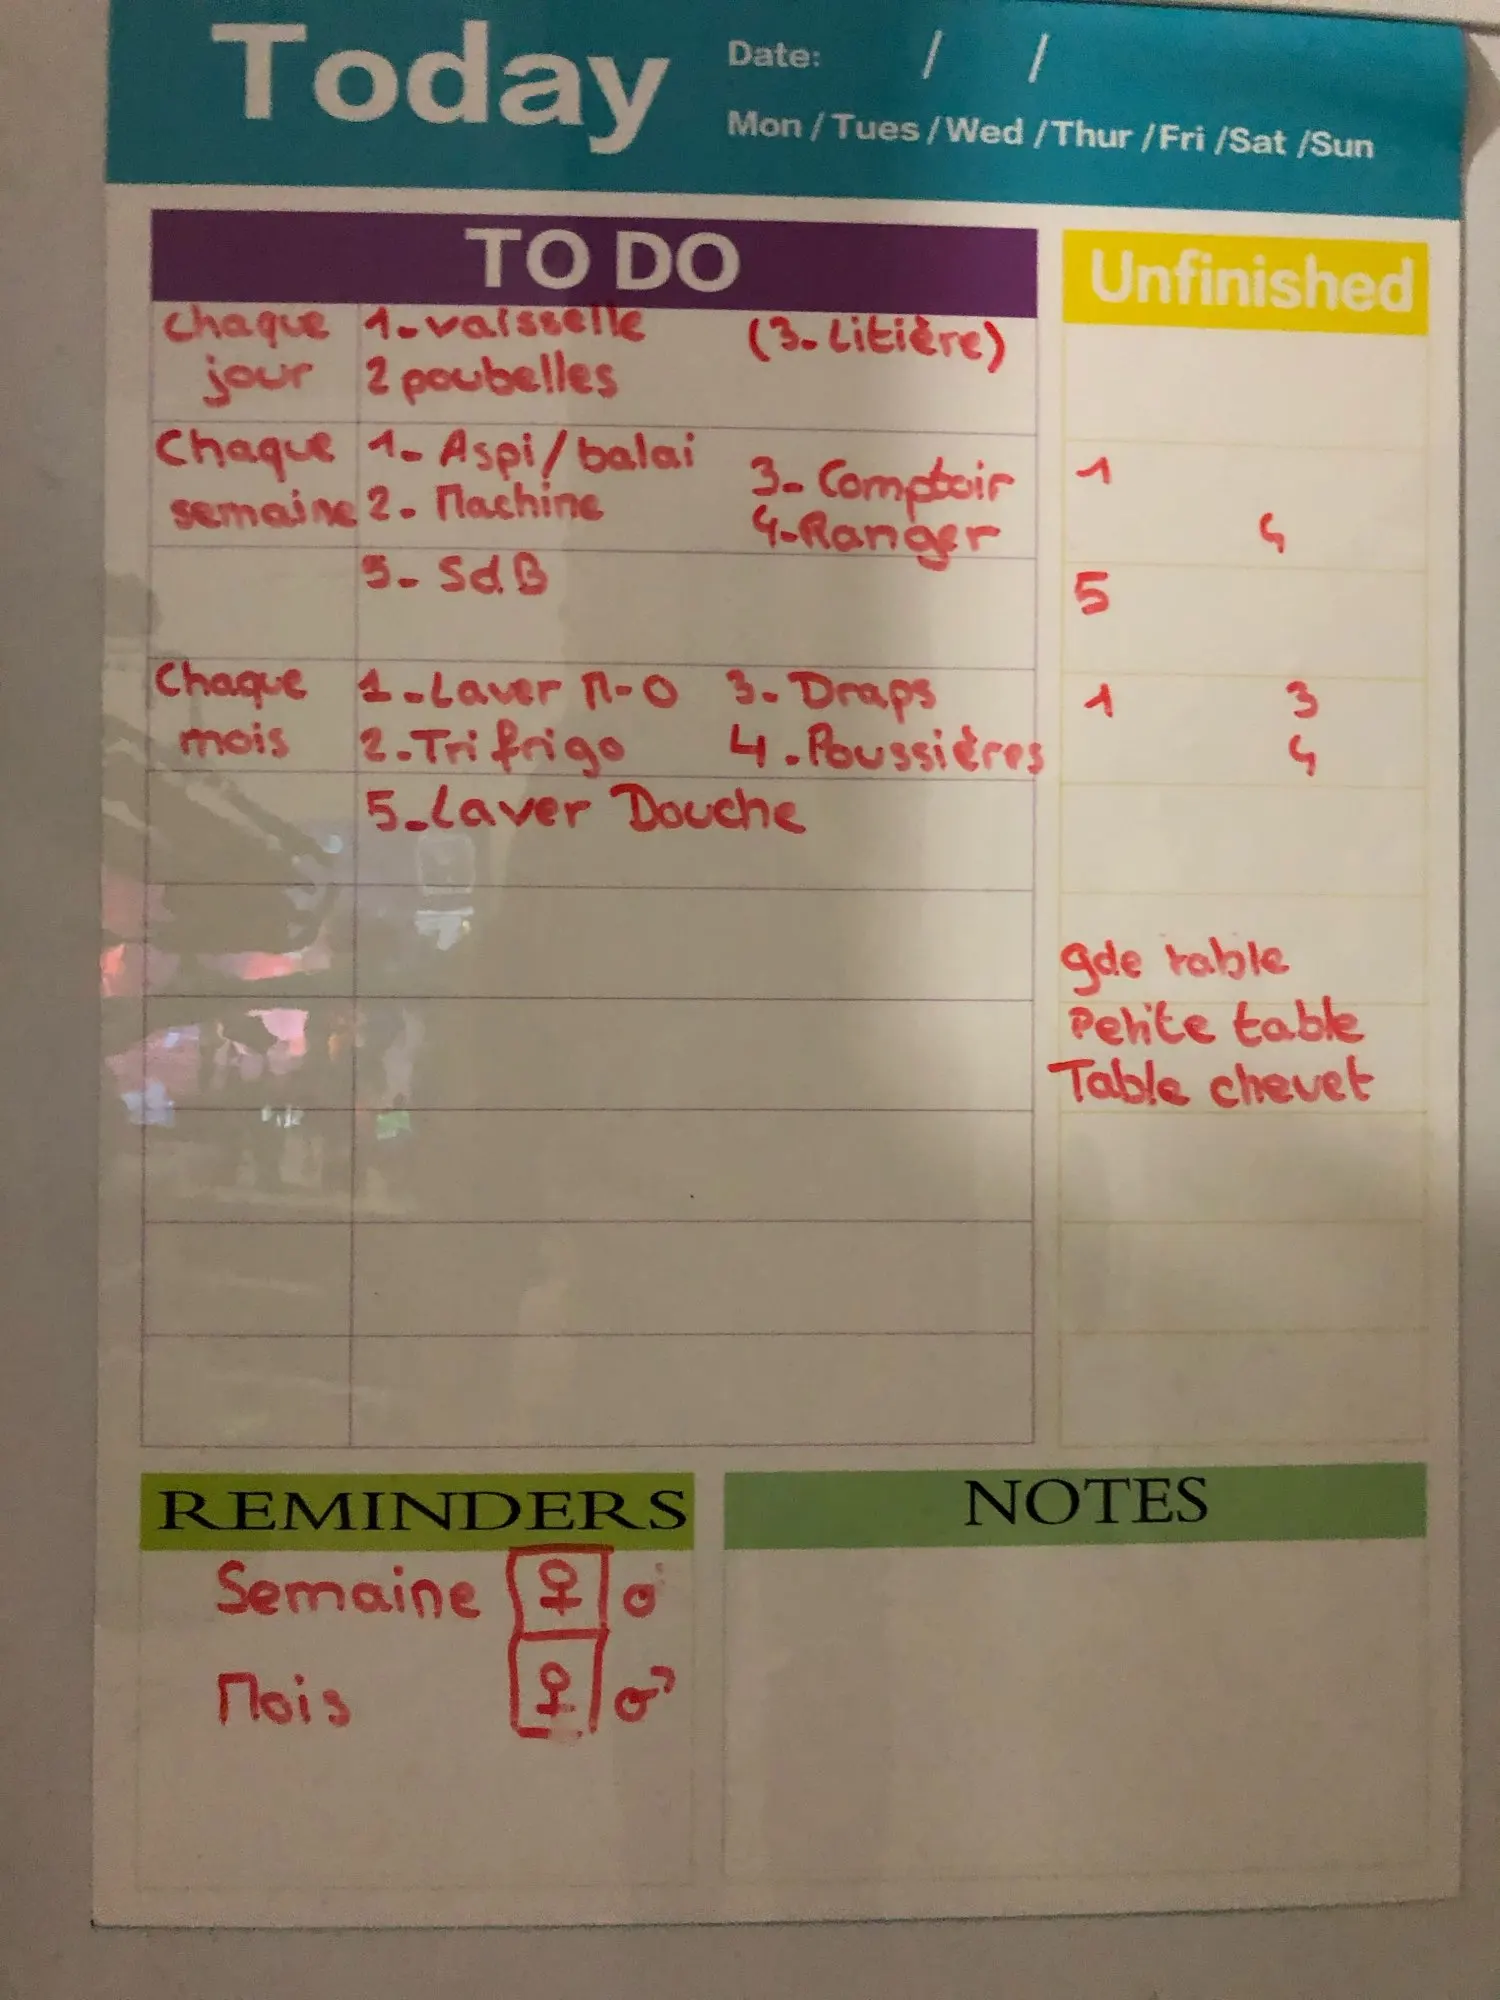 Today
Date: / /
Mon / Tues / Wed / Thur / Fri / Sat / Sun
TO DO
Unfinished
chaque jour
1-vaisselle
2 poubelles
(3-Litière)
Chaque semaine
1- Aspi/balai
2- Machine
3- Comptoir
4-Ranger
5- SdB
1
4
5
Chaque mois
1-Laver M-O
2-Tri frigo
3- Draps
4-Poussières
5-Laver Douche
1
3
4
gde table
Petite table
Table chevet
REMINDERS
Semaine ♀ ♂
Mois ♀ ♂
NOTES